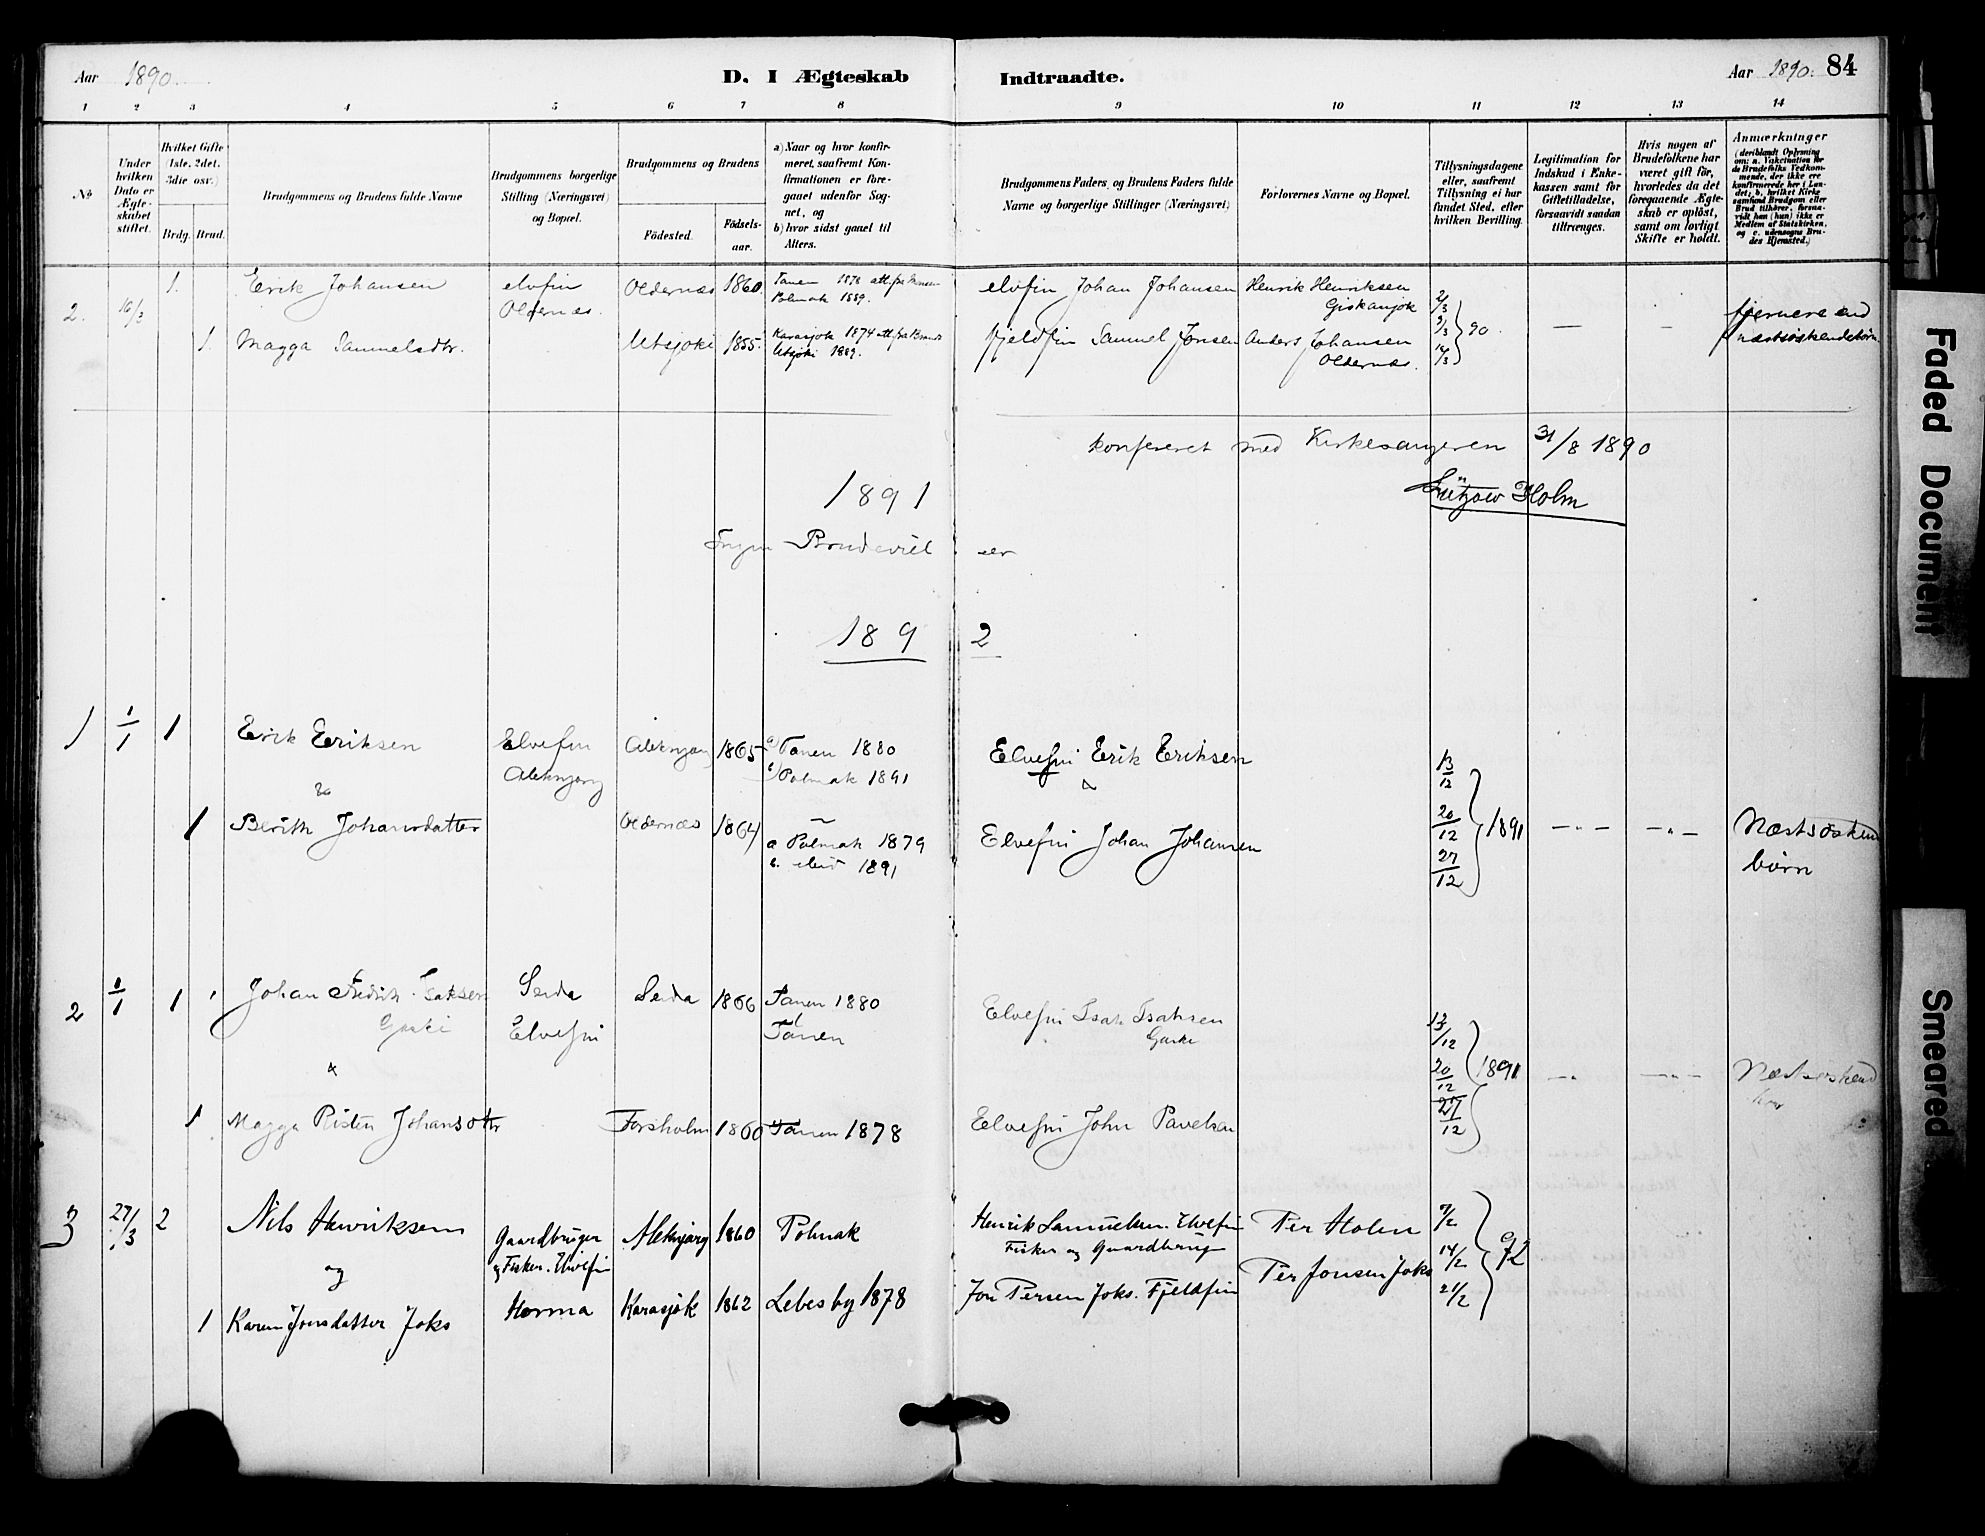 Aar 1890.
D. I Ægteskab Indtraadte.
Aar 1890. 84
1 2 3 4 5 6 7 8 9 10 11 12 13 14
No
Under hvilken Dato er Ægteskabet stiftet.
Hvilket Gifte (1ste, 2det, 3die osv.)
Brdg. Brud.
Brudgommens og Brudens fulde Navne
Brudgommens borgerlige Stilling (Næringsvei) og Bopæl.
Brudgommens og Brudens
Födested.
Födsels-aar.
a) Naar og hvor konfirmeret, saafremt Konfirmationen er foregaaet udenfor Sognet, og
b) hvor sidst gaaet til Alters.
Brudgommens Faders og Brudens Faders fulde Navne og borgerlige Stillinger (Næringsvei)
Forlovernes Navne og Bopæl.
Tillysningsdagene eller, saafremt Tillysning ei har fundet Sted, efter hvilken Bevilling.
Legitimation for Indskud i Enkekassen samt for Giftetilladelse, forsaavidt saadan tiltrænges.
Hvis nogen af Brudefolkene har været gift för, hvorledes da det foregaaende Ægteskab er oplöst, samt om lovligt Skifte er holdt.
Anmærkninger
(deriblandt Oplysning om: a. Vakcination for de Brudefolks Vedkommende, der ikke ere konfirmerede her i Landet; b. hvilket Kirkesamfund Brudgom eller Brud tilhörer, forsaavidt han (hun) ikke er Medlem af Statskirken, og c. udensogns Brudes Hjemsted.)
2. 16/3 1. Erik Johansen elvfin Oldernæs 1860. Tanen 1878 att. fra
Oldernæs. Polmak 1889.
elvfin Johan Johansen Henrik Henriksen
Giskanjok 2/3
1. Magga Samuelsdtr. Utsjoki 1855. Karasjok 1874 att. fra
Utsjoki 1889.
fjeldfin Samuel Jonsen Anders Johansen 9/3 90. — —
Oldernæs. 16/3
fjernere end
næstsöskendebörn
konfereret med Kirkesangeren 31/8 1890
Lützow Holm
1891
Ingen Brudevielser
1892
1 1/1 1 Erik Eriksen Elvefin Aleknjarg 1865 a) Tanen 1880
Aleknjarg b) Polmak 1891
Elvefin Erik Eriksen 13/12
&
1 Berith Johansdatter Oldernæs 1864 a Polmak 1879
b. ibid 1891
Elvefin Johan Johansen 20/12 1891 — „ — — „ — Næstsöskend
27/12 börn
2 1/1 1 Johan Fredrik Isaksen Seida Seida 1866 Tanen 1880
Elvefin Tanen
Elvefin Isak Isaksen 13/12
&
20/12 1891 — „ — „ — Næstsöskend
1 Magga Risten Johansdtr Forsholm 1860 Tanen 1878
Elvefin John Pavelsen 27/12
3 27/3 2 Nils Henriksen Gaardbruger Aleknjarg 1860 Polmak
og Fisker. Elvefin
Henrik Samuelsen. Elvefin Per Holm 7/2
Fisker og Gaardbrug 14/2 92
og
1 Karen Jonsdatter Joks Horma Karasjok 1862 Lebesby 1878
Jon Persen Joks. Fjeldfin Per Jonsen Joks 21/2
Faded Document
Smeared